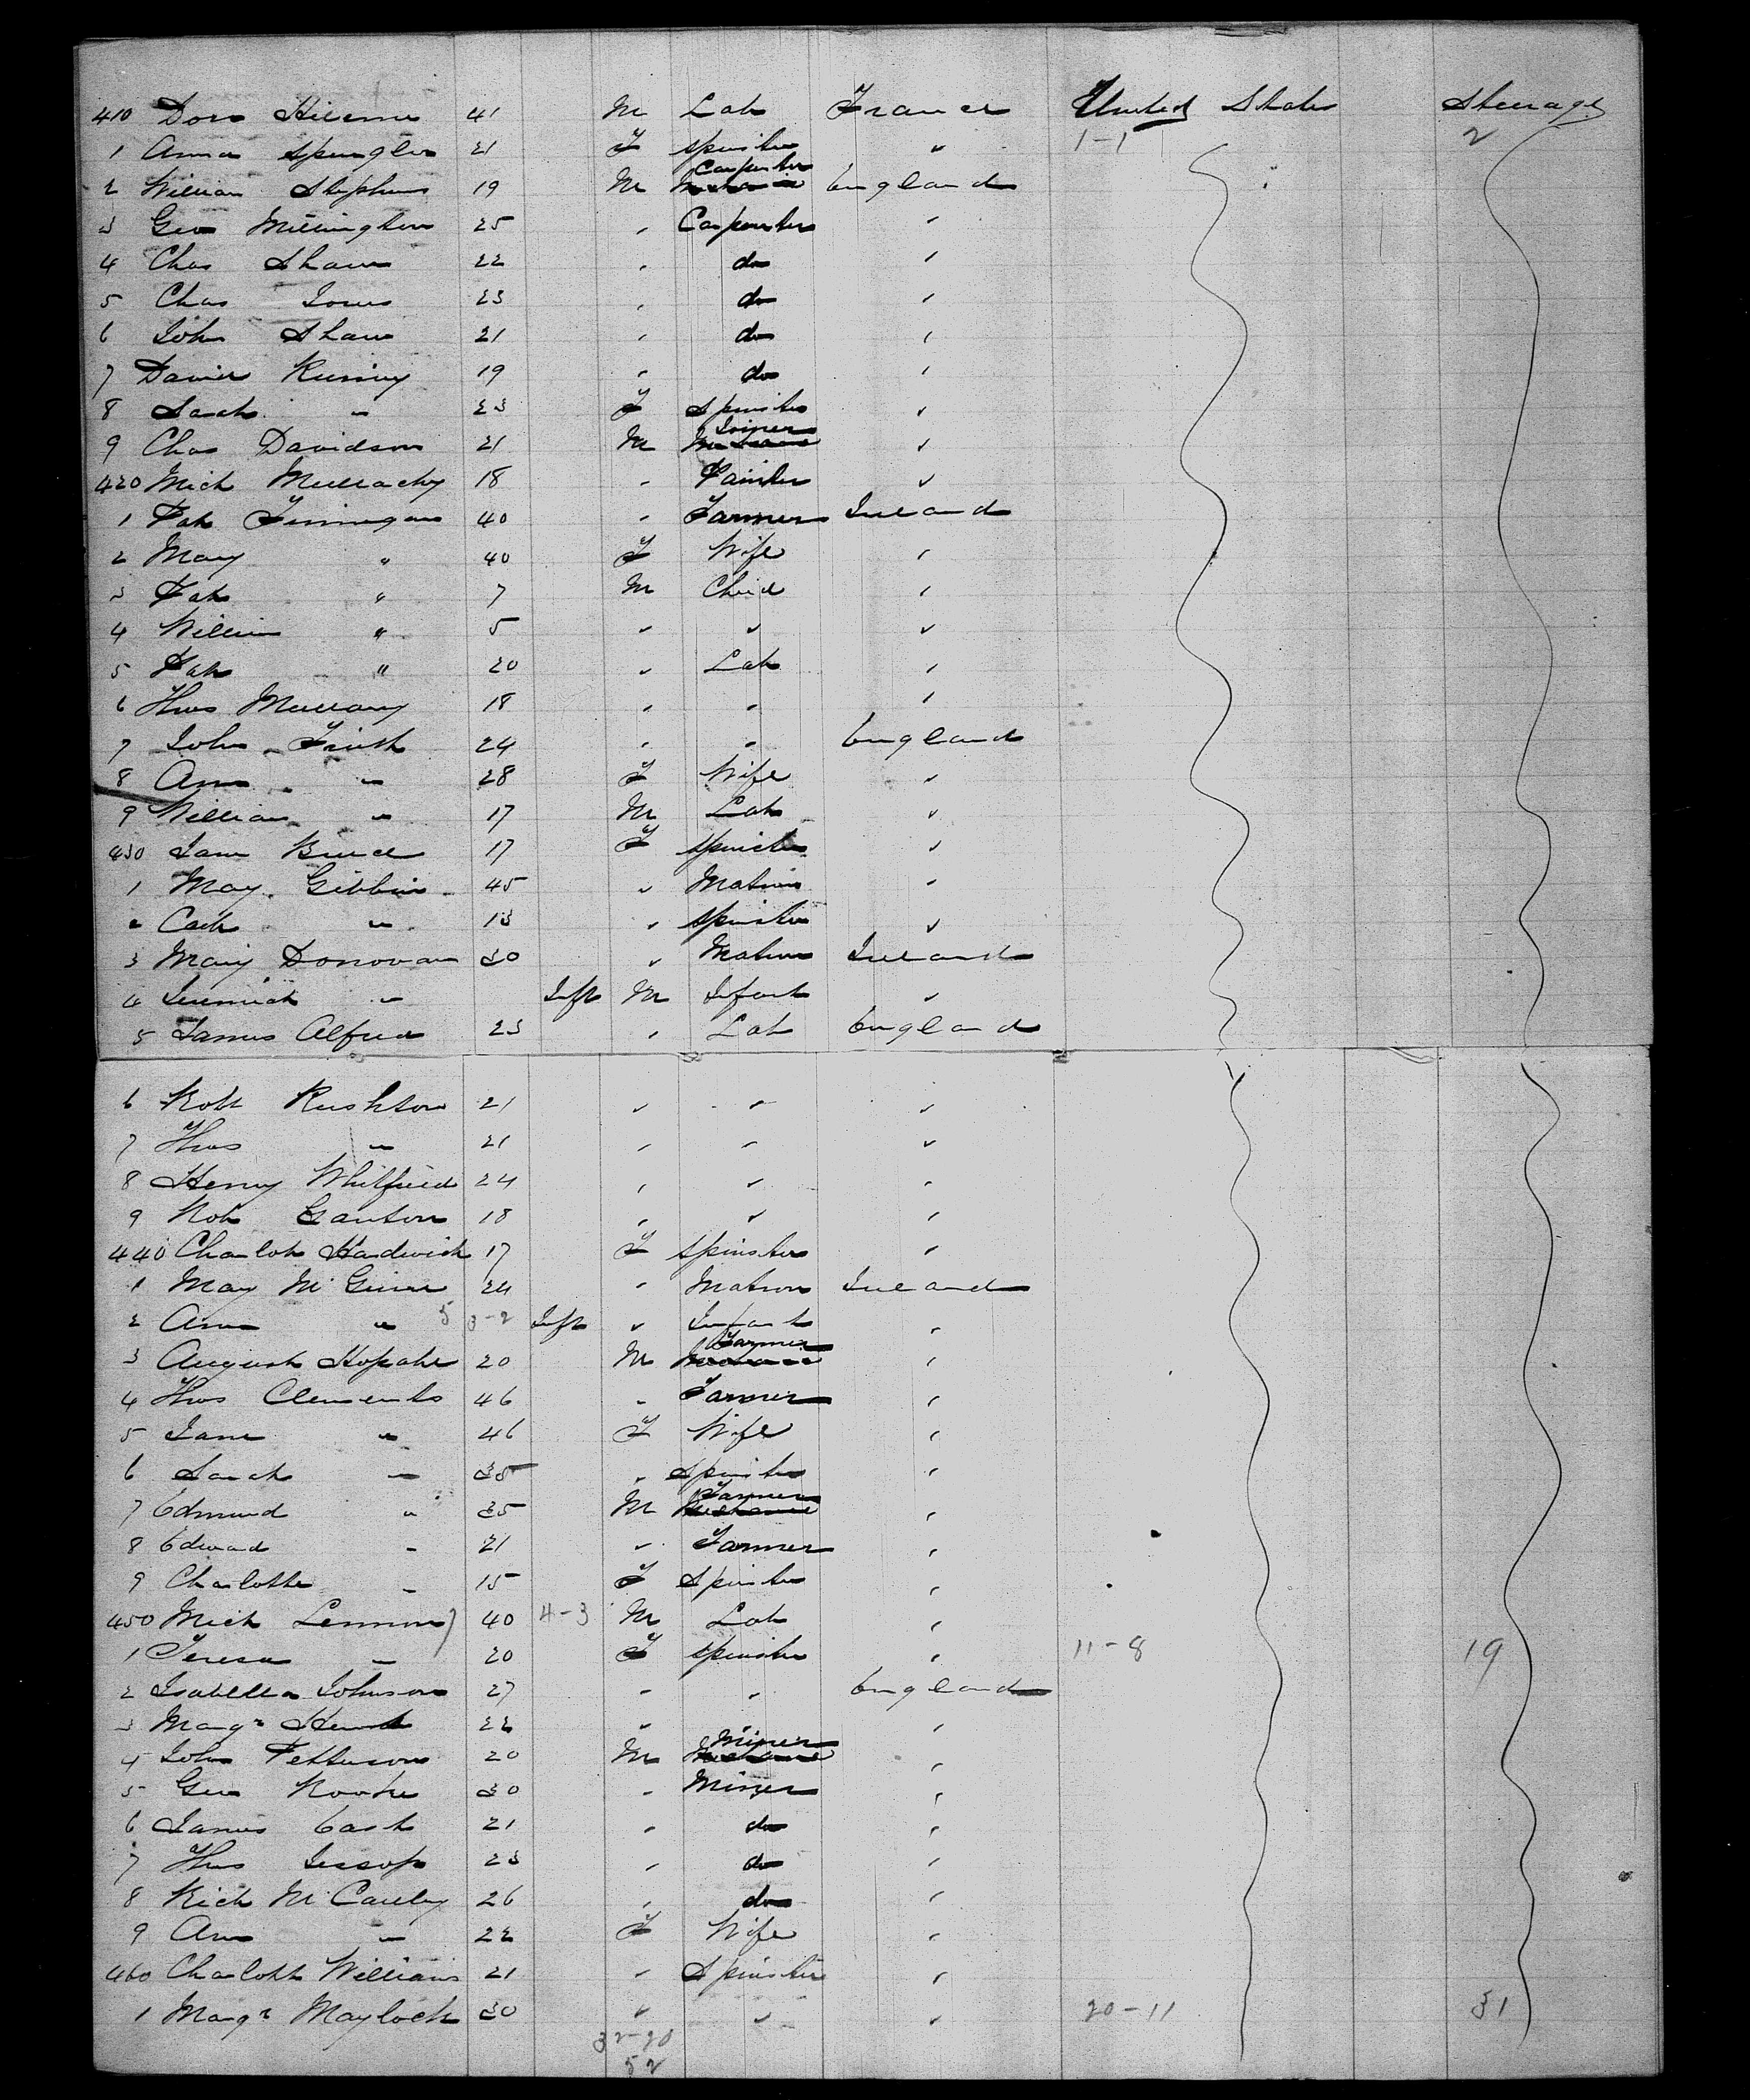 410 Dom 41 M Lab France United States Steerage
1 Anna Spengler 21 F Spinster " 1-1 2
2 William Stephens 19 M Carpenter England
3 Geo Millington 25 " Carpenter "
4 Chas Shaw 22 " do "
5 Chas Jones 23 " do "
6 John Shaw 21 " do "
7 David 19 " do "
8 Sarah " 23 F Spinster "
9 Chas Davidson 21 M Joiner "
420 Mich Mullachy 18 " Painter "
1 Pat Finnigan 40 " Farmer Ireland
2 Mary " 40 F Wife "
3 Pat " 7 M Child "
4 William " 5 " " "
5 Pat " 20 " Lab "
6 Thos Mullany 18 " " "
7 John 24 " " England
8 Ann " 28 F Wife "
9 William " 17 M Lab "
430 Jane Bruce 17 F Spinster "
1 Mary Gibbins 45 " Matron "
2 Cath " 13 " Spinster "
3 Mary Donovan 30 " Matron Ireland
4 Jeremiah " Inft M Infant "
5 James Alfred 23 " Lab England
6 Robt Rushton 21 " " "
7 Thos " 21 " " "
8 Henry Whitfield 24 " " "
9 Robt 18 " " "
440 Charlot Hardwick 17 F Spinster "
1 Mary 24 " Matron Ireland
2 Ann " 5 3-2 Inft " Infant "
3 August 20 M Farmer "
4 Thos Clements 46 " Farmer "
5 Jane " 46 F Wife "
6 Sarah " 35 " Spinster "
7 Edmund " 25 M Farmer "
8 Edward " 21 " Farmer "
9 Charlotte " 15 F Spinster "
450 Mich Lennon 40 4-3 M Lab "
1 Teresa " 20 F Spinster " 11-8 19
2 Isabella Johnson 27 " " England
3 Margt 22 " " "
4 John Petterson 20 M Miner "
5 Geo Rooke 30 " Miner "
6 James Cash 21 " do "
7 Thos Jessop 23 " do "
8 Rich McCauley 26 " do "
9 Ann " 22 F Wife "
460 Charlott Williams 21 " Spinster "
1 Margt Maylock 30 " " " 20-11 31
32-20
52